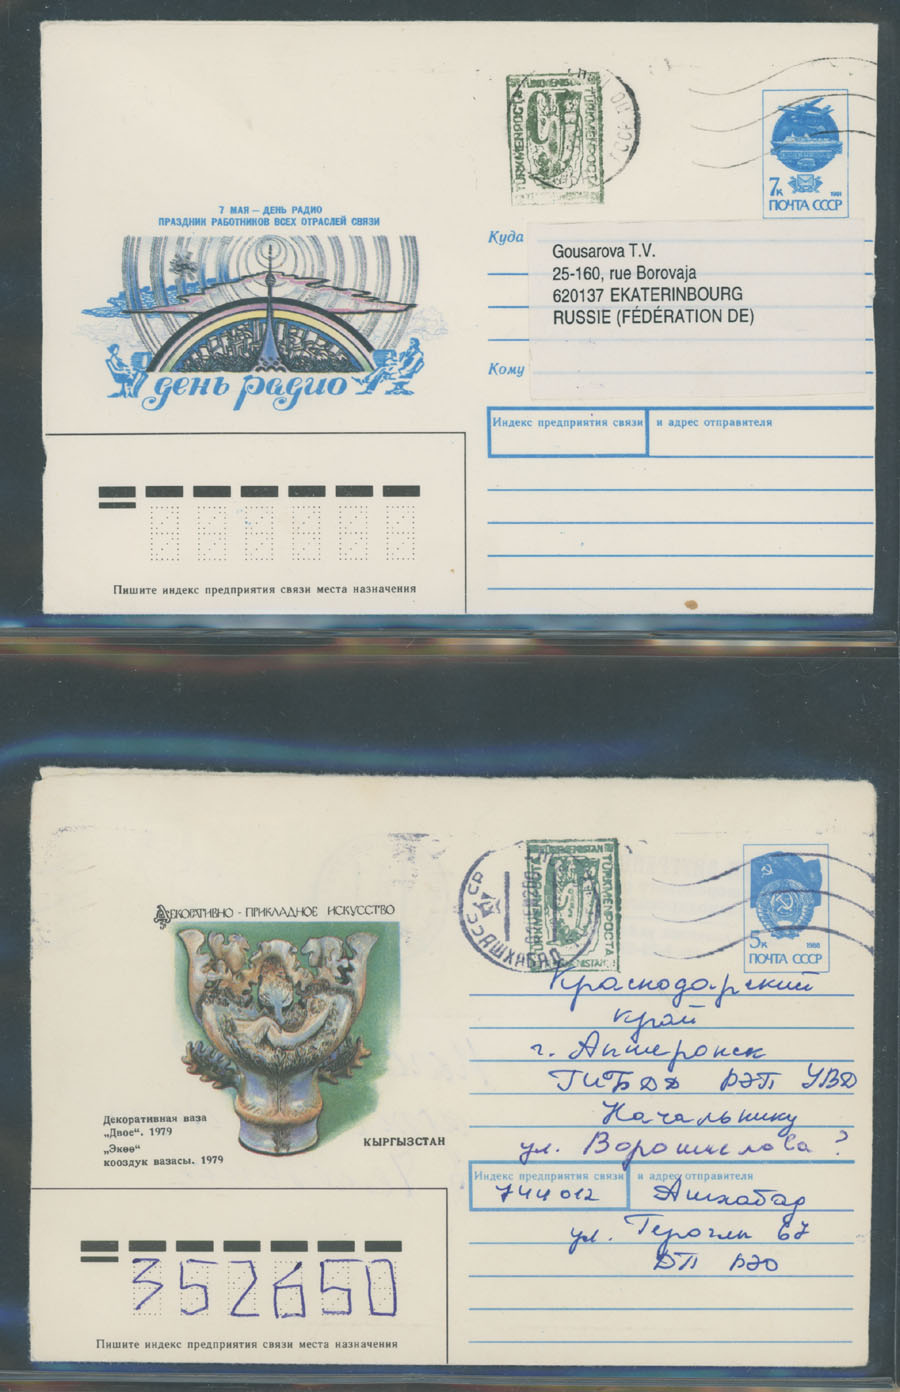 TÜRKMENPOÇTA
TÜRKMENPOÇTA
7к 1991
ПОЧТА СССР
7 МАЯ — ДЕНЬ РАДИО
ПРАЗДНИК РАБОТНИКОВ ВСЕХ ОТРАСЛЕЙ СВЯЗИ
день радио
Куда
Gousarova T.V.
25-160, rue Borovaja
620137 EKATERINBOURG
RUSSIE (FÉDÉRATION DE)
Кому
Индекс предприятия связи и адрес отправителя
Пишите индекс предприятия связи места назначения
TÜRKMENPOÇTA
TÜRKMENPOÇTA
АШХАБАД
5к 1988
ПОЧТА СССР
ДЕКОРАТИВНО - ПРИКЛАДНОЕ ИСКУССТВО
Декоративная ваза
„Двое“. 1979
„Экөө“
кооздук вазасы. 1979
КЫРГЫЗСТАН
Краснодарский
край
г. Апшеронск
ГИБДД РЭП УВД
Начальнику
ул. Ворошилова?
Индекс предприятия связи и адрес отправителя
744012 Ашхабад
ул. Героглы 67
ДП РЭО
352650
Пишите индекс предприятия связи места назначения